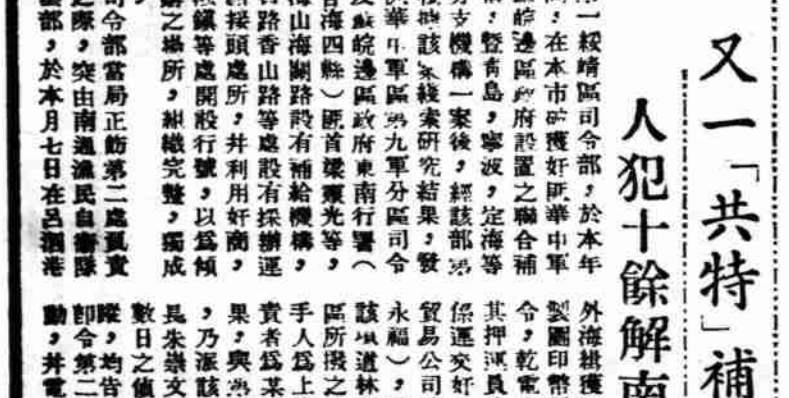 又一「共特」補
人犯十餘解南
第一綏靖區司令部,於本年
,在本市破獲奸匪華中軍
皖邊區政府設置之聯合補
,暨青島,寧波,定海等
分支機構一案後,經該部第
該案綫索研究結果,發
華中軍區第九軍分區司令
皖邊區政府東南行署(
海四縣)匪首梁靈光等,
山海關路設有補給機構,
路香山路等處設有採辦運
接頭處所,幷利用奸商,
鎮等處開設行號,以爲傾
之場所,組織完整,獨成
,
司令部當局正飭第二處負責
之際,突由南通漁民自衛隊
部,於本月七日在呂泗港
外海緝獲
製圖印幣
令,乾電
其押運員
係運交奸
貿易公司
永福),
該道林
區所撥之
手人爲上
責者爲某
果,與第
,乃派該
長朱崇文
數日之偵
蹤,均告
即令第二
動,幷電